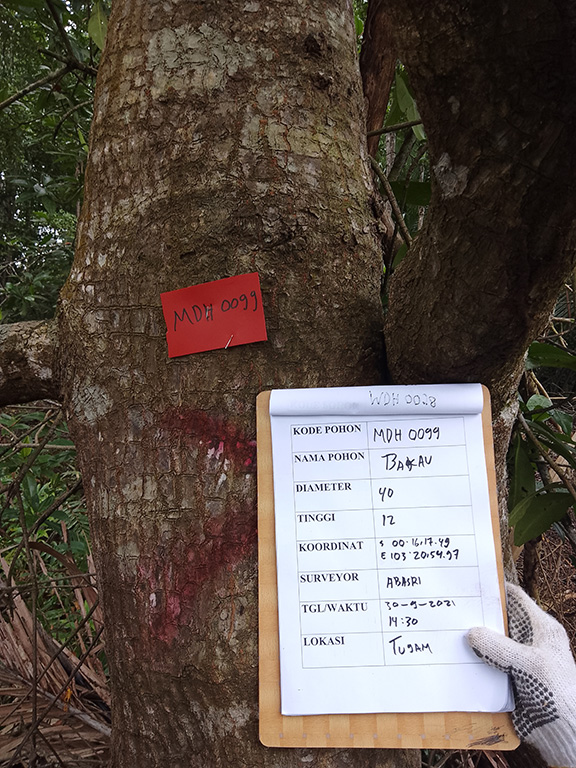 MDH 0099
KODE POHON MDH 0099
NAMA POHON BAKAU
DIAMETER 40
TINGGI 12
KOORDINAT S 00.16,17.49
E 103.20,54.97
SURVEYOR ABASRI
TGL/WAKTU 30-9-2021
14:30
LOKASI TUJAM